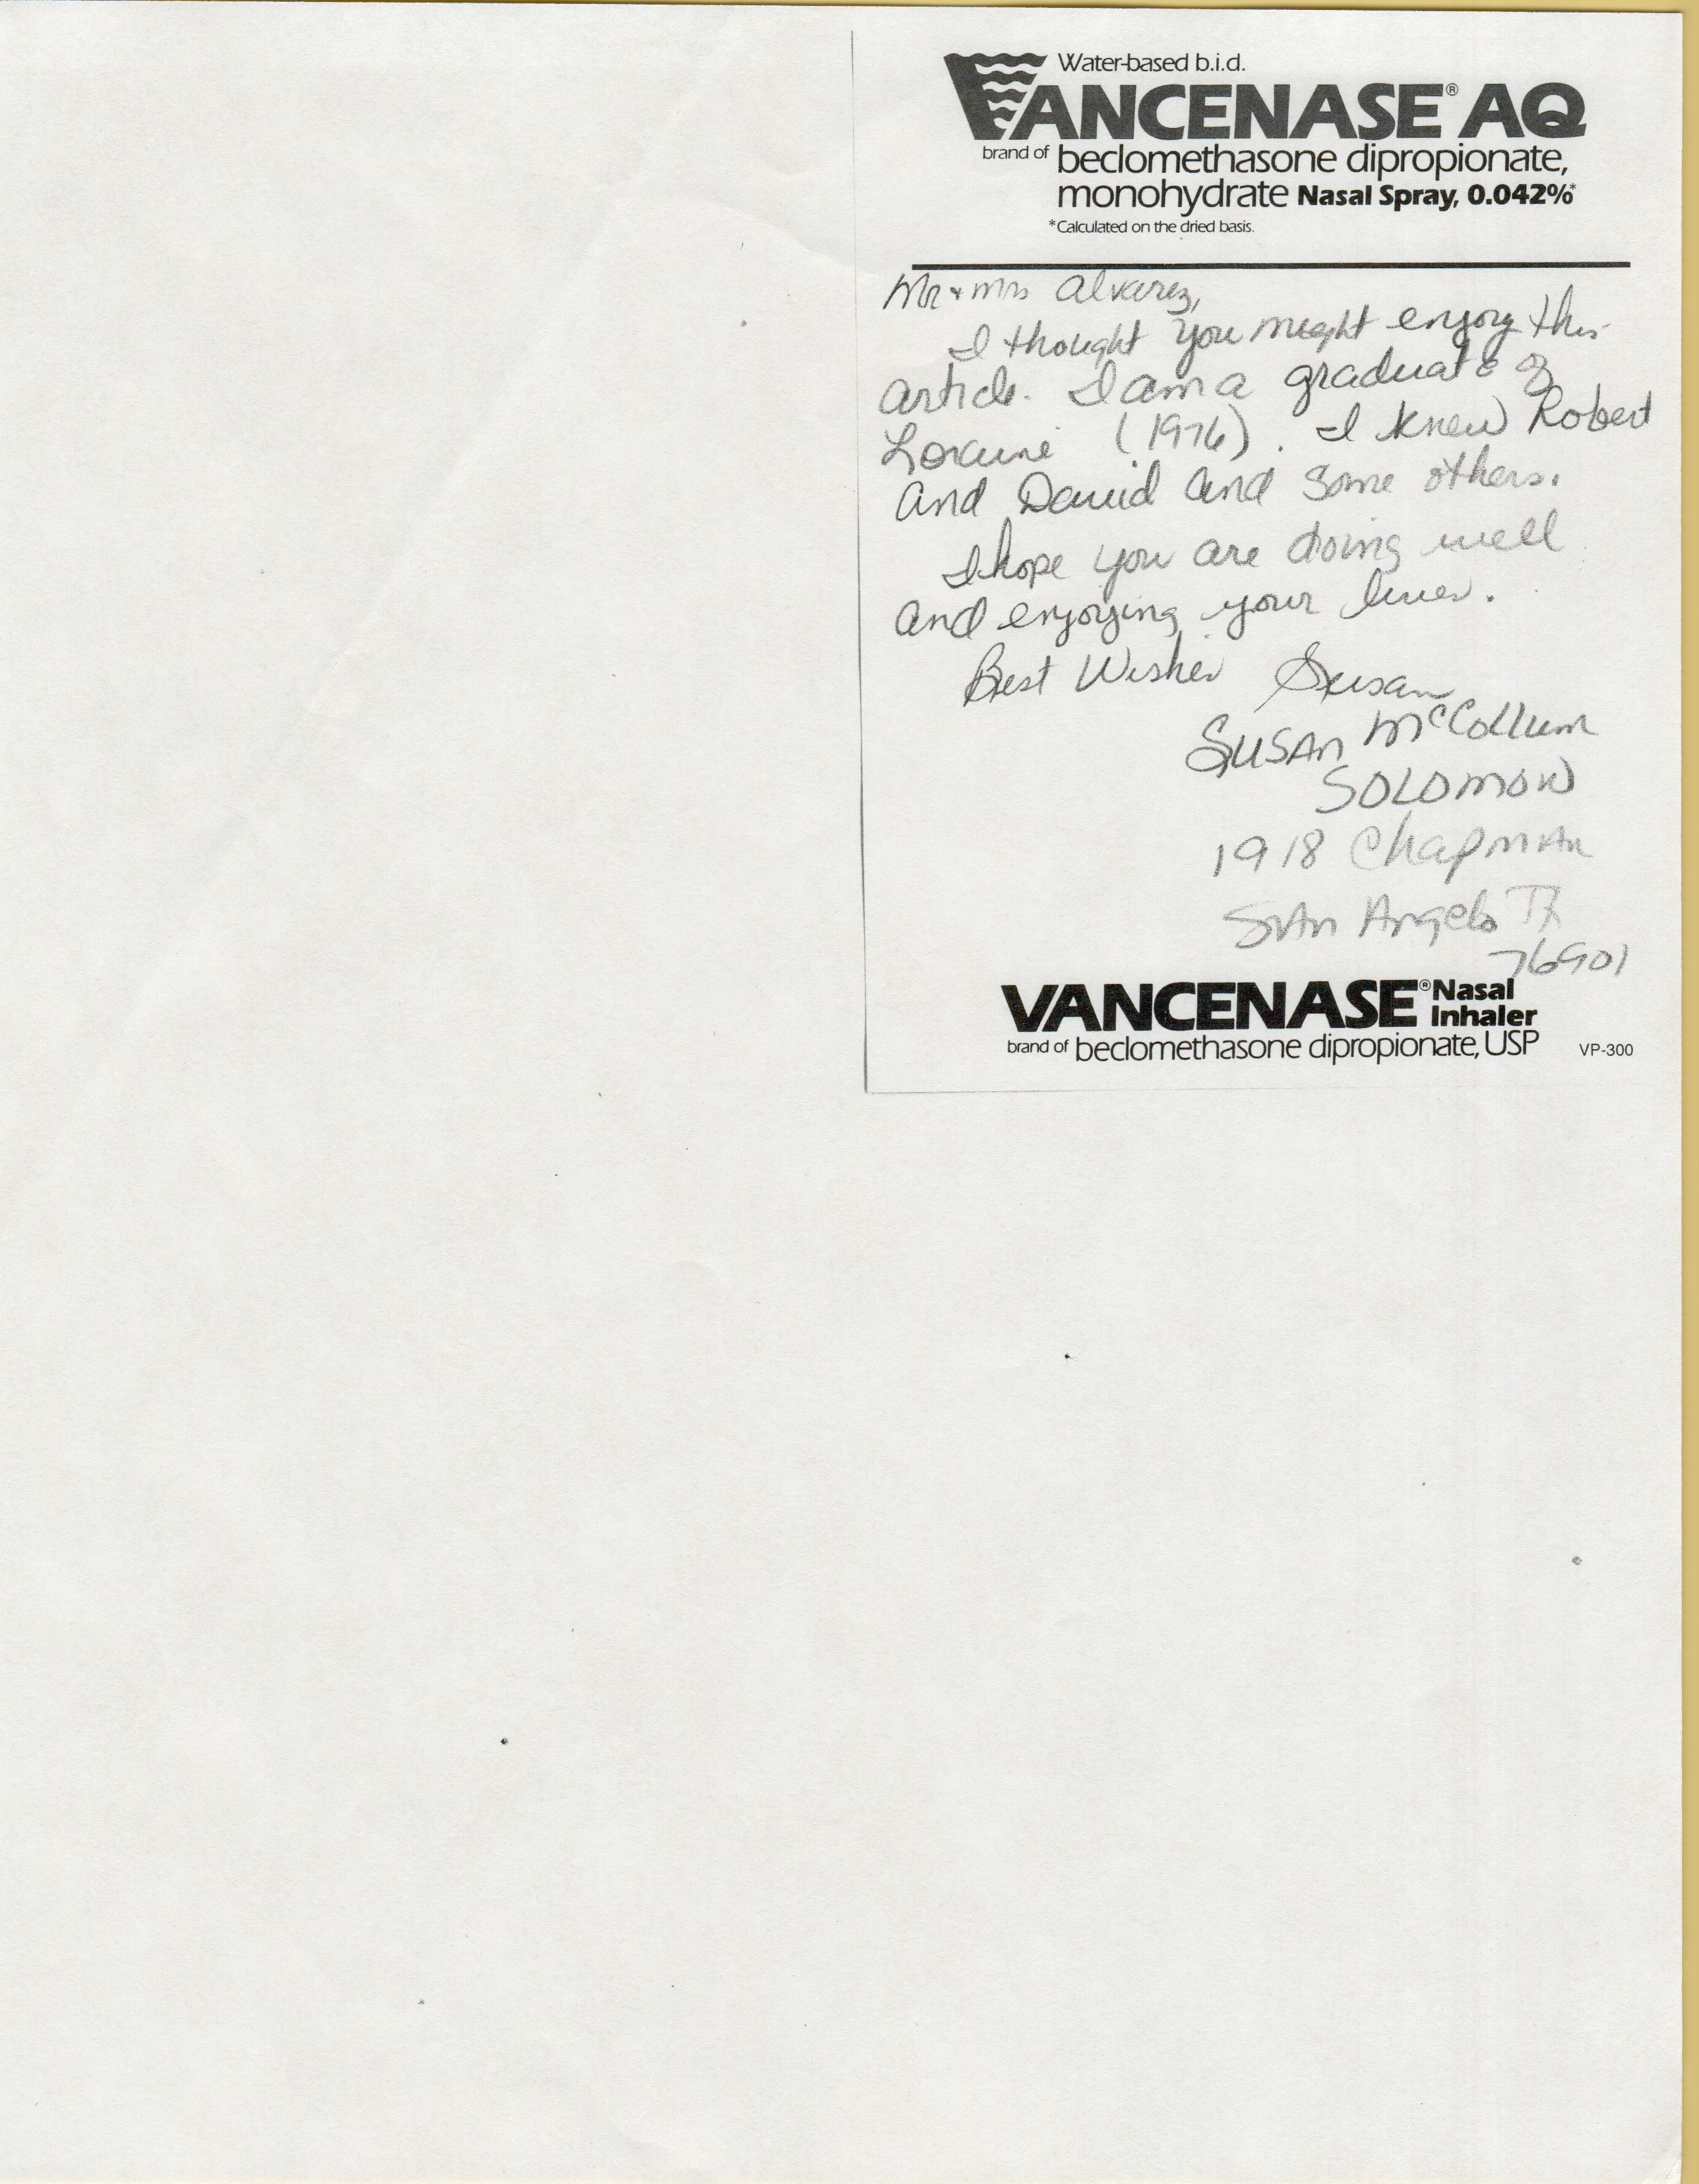 Water-based b.i.d.
VANCENASE® AQ
brand of beclomethasone dipropionate,
monohydrate Nasal Spray, 0.042%*
*Calculated on the dried basis.
Mr + Mrs Alvarez,
I thought you might enjoy this
article. I am a graduate of
Loraine (1976). I knew Robert
and David and some others.
I hope you are doing well
and enjoying your lives.
Best Wishes Susan
SUSAN McCollum
SOLOMON
1918 Chapman
San Angelo TX
76901
VANCENASE® Nasal
Inhaler
brand of beclomethasone dipropionate, USP VP-300